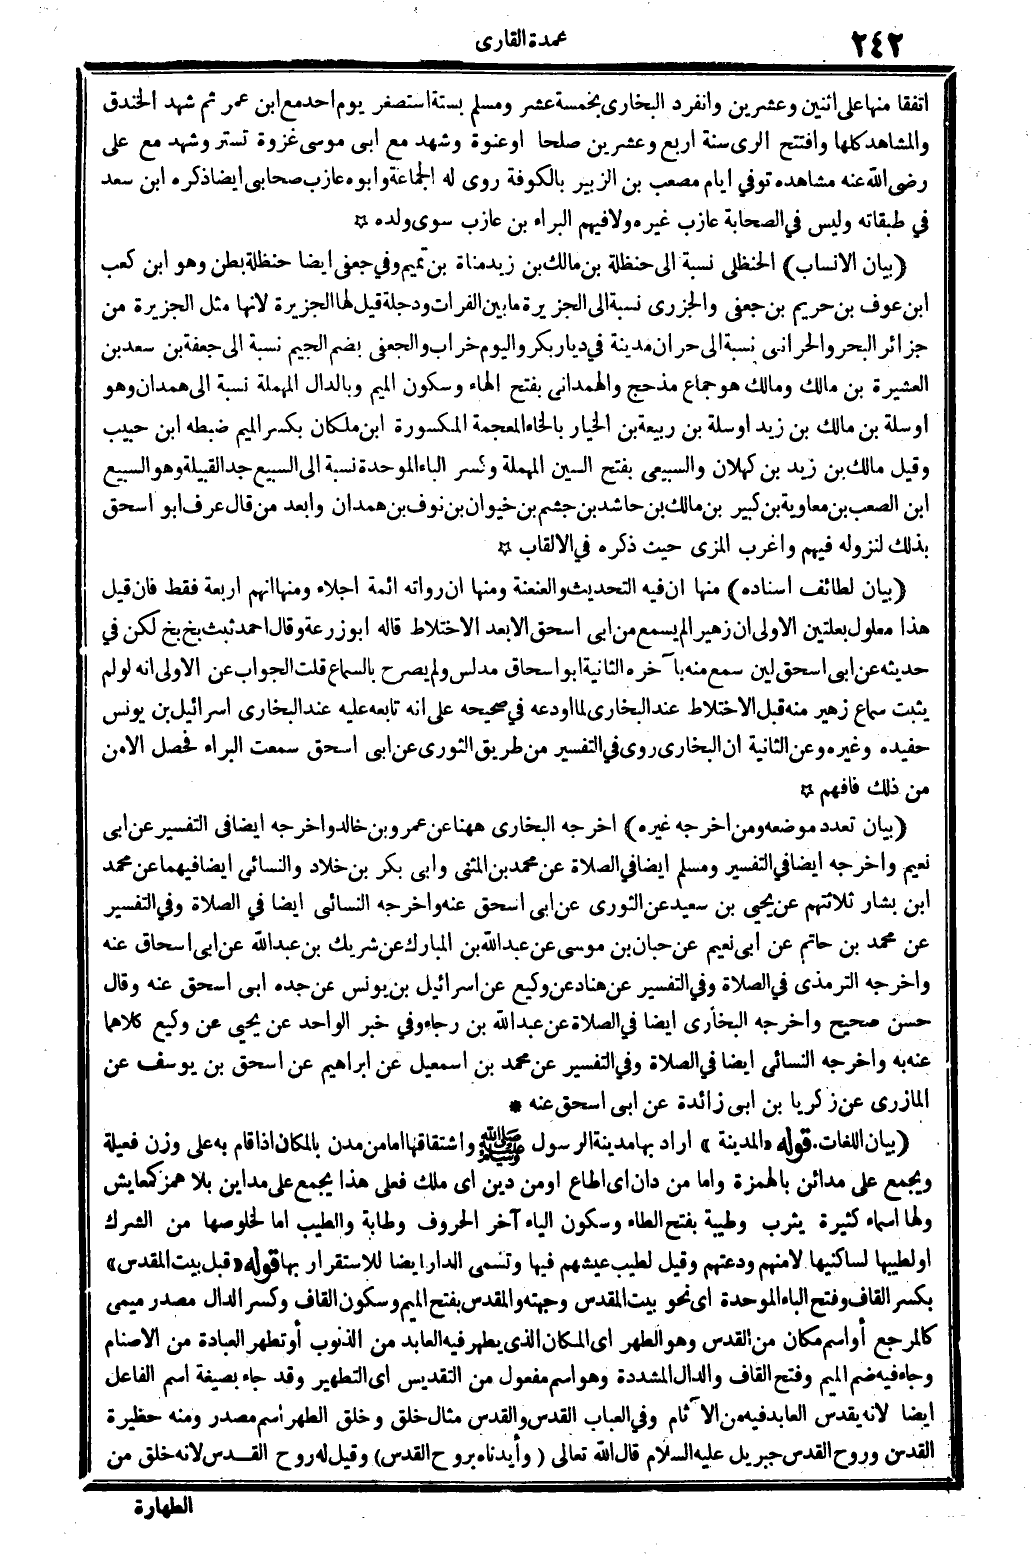 ٢٤٢
عمدة القارى
اتفقا منها على اثنين وعشرين وانفرد البخارى بخمسة عشر ومسلم بستة استصغر يوم احد مع ابن عمر ثم شهد الخندق
والمشاهد كلها وافتتح الرى سنة اربع وعشرين صلحا اوعنوة وشهد مع ابى موسى غزوة تستر وشهد مع على
رضى الله عنه مشاهده توفي ايام مصعب بن الزبير بالكوفة روى له الجماعة وابوه عازب صحابى ايضا ذكره ابن سعد
في طبقاته وليس في الصحابة عازب غيره ولا فيهم البراء بن عازب سوى ولده ☆
(بيان الانساب) الحنظلى نسبة الى حنظلة بن مالك بن زيد مناة بن تميم وفي جعفى ايضا حنظلة بطن وهو ابن كعب
ابن عوف بن حريم بن جعفى والجزرى نسبة الى الجزيرة مابين الفرات ودجلة قيل لها الجزيرة لانها مثل الجزيرة من
جزائر البحر والحرانى نسبة الى حران مدينة في ديار بكر واليوم خراب والجعفى بضم الجيم نسبة الى جعفة بن سعد بن
العشيرة بن مالك ومالك هو جماع مذحج والهمدانى بفتح الهاء وسكون الميم وبالدال المهملة نسبة الى همدان وهو
اوسلة بن مالك بن زيد اوسلة بن ربيعة بن الخيار بالخاء المعجمة المكسورة ابن ملكان بكسر الميم ضبطه ابن حبيب
وقيل مالك بن زيد بن كهلان والسبيعى بفتح السين المهملة وكسر الباء الموحدة نسبة الى السبيع جد القبيلة وهو السبيع
ابن الصعب بن معاوية بن كبير بن مالك بن حاشد بن جشم بن خيوان بن نوف بن همدان وابعد من قال عرف ابو اسحق
بذلك لنزوله فيهم واغرب المزى حيث ذكره في الالقاب ☆
(بيان لطائف اسناده) منها ان فيه التحديث والعنعنة ومنها ان رواته ائمة اجلاء ومنها انهم اربعة فقط فان قيل
هذا معلول بعلتين الاولى ان زهيرا لم يسمع من ابى اسحق الا بعد الاختلاط قاله ابو زرعة وقال احمد ثبت بخ بخ لكن في
حديثه عن ابى اسحق لين سمع منه بآخره الثانية ابو اسحاق مدلس ولم يصرح بالسماع قلت الجواب عن الاولى انه لو لم
يثبت سماع زهير منه قبل الاختلاط عند البخارى لما اودعه في صحيحه على انه تابعه عليه عند البخارى اسرائيل بن يونس
حفيده وغيره وعن الثانية ان البخارى روى في التفسير من طريق الثورى عن ابى اسحق سمعت البراء فحصل الامن
من ذلك فافهم ☆
(بيان تعدد موضعه ومن اخرجه غيره) اخرجه البخارى ههنا عن عمرو بن خالد واخرجه ايضا فى التفسير عن ابى
نعيم واخرجه ايضا في التفسير ومسلم ايضا في الصلاة عن محمد بن المثنى وابى بكر بن خلاد والنسائى ايضا فيهما عن محمد
ابن بشار ثلاثتهم عن يحيى بن سعيد عن الثورى عن ابى اسحق عنه واخرجه النسائى ايضا في الصلاة وفي التفسير
عن محمد بن حاتم عن ابى نعيم عن حبان بن موسى عن عبدالله بن المبارك عن شريك بن عبدالله عن ابى اسحاق عنه
واخرجه الترمذى في الصلاة وفي التفسير عن هناد عن وكيع عن اسرائيل بن يونس عن جده ابى اسحق عنه وقال
حسن صحيح واخرجه البخارى ايضا في الصلاة عن عبدالله بن رجاء وفي خبر الواحد عن يحيى عن وكيع كلاهما
عنه به واخرجه النسائى ايضا في الصلاة وفي التفسير عن محمد بن اسمعيل عن ابراهيم عن اسحق بن يوسف عن
المازرى عن زكريا بن ابى زائدة عن ابى اسحق عنه *
(بيان اللغات. قوله «المدينة» اراد بها مدينة الرسول ﷺ واشتقاقها اما من مدن بالمكان اذا قام به على وزن فعيلة
ويجمع على مدائن بالهمزة واما من دان اى اطاع او من دين اى ملك فعلى هذا يجمع على مداين بلا همز كمعايش
ولها اسماء كثيرة يثرب وطيبة بفتح الطاء وسكون الياء آخر الحروف وطابة والطيب اما لخلوصها من الشرك
او لطيبها لساكنيها لامنهم ودعتهم وقيل لطيب عيشهم فيها وتسمى الدار ايضا للاستقرار بها قوله «قبل بيت المقدس»
بكسر القاف وفتح الباء الموحدة اى نحو بيت المقدس وجهته والمقدس بفتح الميم وسكون القاف وكسر الدال مصدر ميمى
كالمرجع أو اسم مكان من القدس وهو الطهر اى المكان الذى يطهر فيه العابد من الذنوب أو تطهر العبادة من الاصنام
وجاء فيه ضم الميم وفتح القاف والدال المشددة وهو اسم مفعول من التقديس اى التطهير وقد جاء بصيغة اسم الفاعل
ايضا لانه يقدس العابد فيه من الآثام وفي العباب القدس والقدس مثال خلق وخلق الطهر اسم مصدر ومنه حظيرة
القدس وروح القدس جبريل عليه السلام قال الله تعالى (وأيدناه بروح القدس) وقيل له روح القدس لانه خلق من
الطهارة